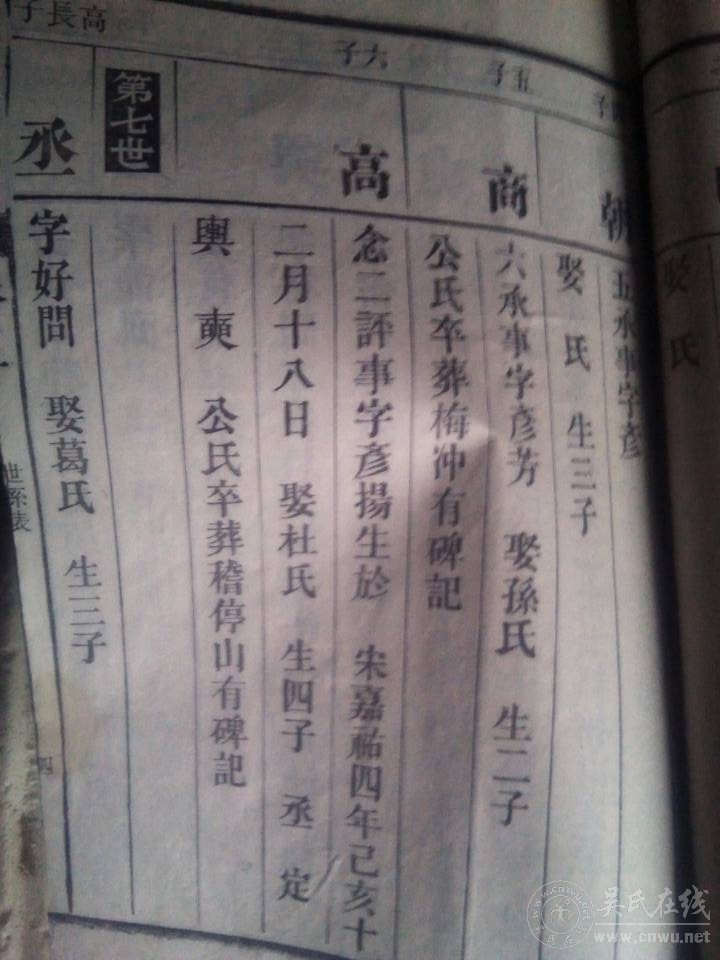 娶 氏
子
朝
五承事字彥
娶 氏 生三子
五子
商
六承事字彥芳 娶孫氏 生二子
公氏卒葬梅沖有碑記
六子
高
念二評事字彥揚生於 宋嘉祐四年己亥十
二月十八日 娶杜氏 生四子 丞 定
輿 奭 公氏卒葬稽停山有碑記
第七世
高長子
丞
字好問 娶葛氏 生三子
世系表
四
吳氏在线
www.cnwu.net